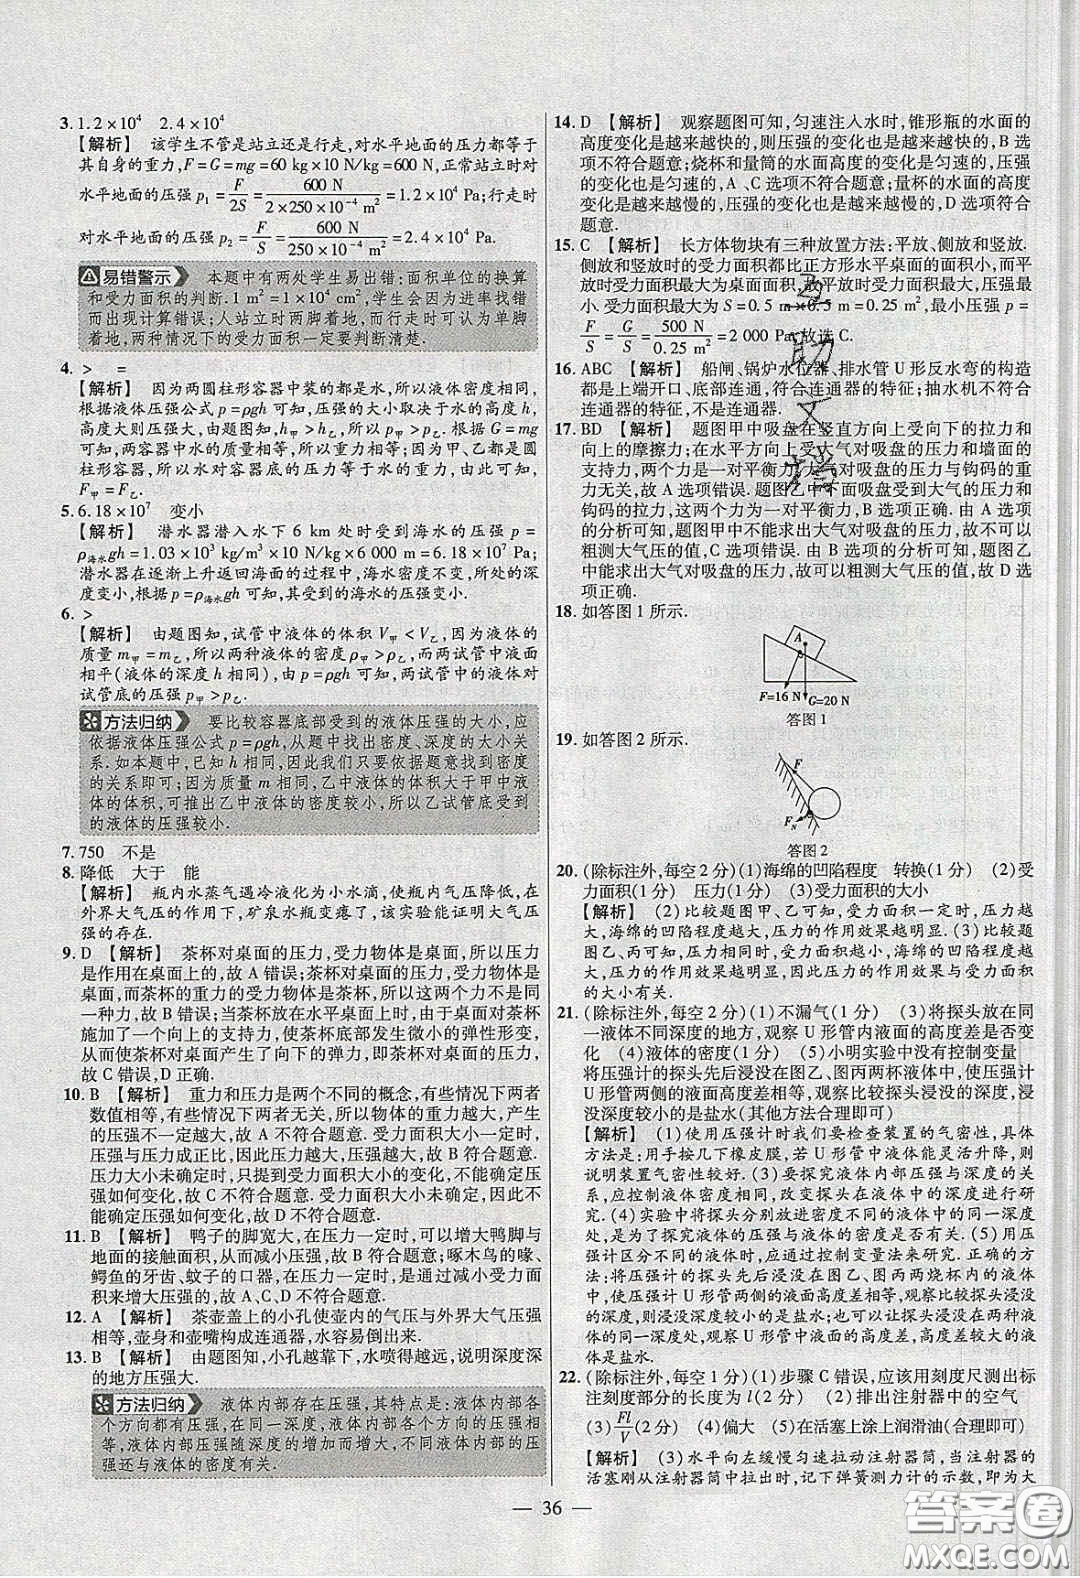 3. 1.2×10⁴　2.4×10⁴
【解析】　该学生不管是站立还是行走,对水平地面的压力都等于
其自身的重力,F=G=mg=60 kg×10 N/kg=600 N,正常站立时对
水平地面的压强 p₁=F/2S=600 N/(2×250×10⁻⁴ m²)=1.2×10⁴ Pa;行走时
对水平地面的压强 p₂=F/S=600 N/(250×10⁻⁴ m²)=2.4×10⁴ Pa.
易错警示　本题中有两处学生易出错:面积单位的换算
和受力面积的判断.1 m²=1×10⁴ cm²,学生会因为进率找错
而出现计算错误;人站立时两脚着地,而行走时可认为单脚
着地,两种情况下的受力面积一定要判断清楚.
4. >　=
【解析】　因为两圆柱形容器中装的都是水,所以液体密度相同,
根据液体压强公式 p=ρgh 可知,压强的大小取决于水的高度 h,
高度大则压强大,由题图可知,h甲>h乙,所以 p甲>p乙. 根据 G=mg
可知,两容器中水的质量相等,所以重力相等,因为甲、乙都是圆
柱形容器,所以水对容器底的压力等于水的重力,由此可知,
F甲=F乙.
5. 6.18×10⁷　变小
【解析】　潜水器潜入水下 6 km 处时受到海水的压强 p=
ρ海水gh=1.03×10³ kg/m³×10 N/kg×6 000 m=6.18×10⁷ Pa;
潜水器在逐渐上升返回海面的过程中,海水密度不变,所处的深
度变小,根据 p=ρ海水gh可知,其受到的海水的压强变小.
6. >
【解析】　由题图知,试管中液体的体积 V甲<V乙,因为液体的
质量 m甲=m乙,所以两种液体的密度ρ甲>ρ乙,而两试管中液面
相平(液体的深度 h 相同),由 p=ρgh 可知,两试管中的液体对
试管底的压强 p甲>p乙.
方法归纳　要比较容器底部受到的液体压强的大小,应
依据液体压强公式 p=ρgh,从题中找出密度、深度的大小关
系. 如本题中,已知 h 相同,因此我们只要依据题意找到密度
的关系即可;因为质量 m 相同,乙中液体的体积大于甲中液
体的体积,可推出乙中液体的密度较小,所以乙试管底受到
的液体的压强较小.
7. 750　不是
8. 降低　大于　能
【解析】　瓶内水蒸气遇冷液化为小水滴,使瓶内气压降低,在
外界大气压的作用下,矿泉水瓶变瘪了,该实验能证明大气压
强的存在.
9. D　【解析】　茶杯对桌面的压力,受力物体是桌面,所以压力
是作用在桌面上的,故 A 错误;茶杯对桌面的压力的受力物体是
桌面,而茶杯的重力的受力物体是茶杯,所以这两个力不是同
一种力,故 B 错误;当茶杯放在水平桌面上时,由于桌面对茶杯
施加了一个向上的支持力,使茶杯底部发生微小的弹性形变,
从而使茶杯对桌面产生了一个向下的弹力,即茶杯对桌面的压力,
故 C 错误,D 正确.
10. B　【解析】　重力和压力是两个不同的概念,有些情况下两者
数值相等,有些情况下两者无关,所以物体的重力越大,产生
的压强不一定越大,故 A 不符合题意. 受力面积大小一定时,
压强与压力成正比,因此压力越大,压强越大,故 B 符合题意.
压力大小未确定时,只提到受力面积大小的变化,不能确定压
强如何变化,故 C 不符合题意. 受力面积大小未确定,因此不
能确定压强如何变化,故 D 不符合题意.
11. B　【解析】　鸭子的脚宽大,在压力一定时,可以增大鸭脚与
地面的接触面积,从而减小压强,故 B 符合题意;啄木鸟的喙、
鳄鱼的牙齿、蚊子的口器,在压力一定时,是通过减小受力面
积来增大压强的,故 A、C、D 不符合题意.
12. A　【解析】　茶壶盖上的小孔使壶内的气压与外界大气压强
相等,壶身和壶嘴构成连通器,水容易倒出来.
13. B　【解析】　由题图知,小孔越靠下,水喷得越远,说明深度深
的地方压强大.
方法归纳　液体内部存在压强,其特点是:液体内部各
个方向都有压强,在同一深度,液体内部各个方向的压强相
等,液体内部压强随深度的增加而增大,不同液体内部的压
强还与液体的密度有关.
14. D　【解析】　观察题图可知,匀速注入水时,锥形瓶的水面的
高度变化是越来越快的,则压强的变化也是越来越快的,B 选
项不符合题意;烧杯和量筒的水面高度的变化是匀速的,压强
的变化也是匀速的,A 、C 选项不符合题意;量杯的水面的高度
变化是越来越慢的,压强的变化也是越来越慢的,D 选项符合
题意.
15. C　【解析】　长方体物块有三种放置方法:平放、侧放和竖放.
侧放和竖放时的受力面积都比正方形水平桌面的面积小,而平
放时受力面积最大为桌面面积,故平放时受力面积最大,压强最
小. 受力面积最大为 S=0.5 m×0.5 m=0.25 m²,最小压强 p=
F/S=G/S=500 N/0.25 m²=2 000 Pa,故选 C.
16. ABC　【解析】　船闸、锅炉水位器、排水管 U 形反水弯的构造
都是上端开口、底部连通,符合连通器的特征;抽水机不符合
连通器的特征,不是连通器.
17. BD　【解析】　题图甲中吸盘在竖直方向上受向下的拉力和
向上的摩擦力;在水平方向上受大气对吸盘的压力和墙面的
支持力,两个力是一对平衡力,大气对吸盘的压力与钩码的重力
不相等,故 A 选项错误. 题图乙中吸盘受到大气的压力和
钩码的拉力,这两个力为一对平衡力,故 B 选项正确. 由 A 选项
的分析可知,题图甲中不能求出大气对吸盘的压力,故不可以
粗测大气压的值,C 选项错误. 由 B 选项的分析可知,题图乙
中能求出大气对吸盘的压力,故可以粗测大气压的值,故 D 选
项正确.
18. 如答图 1 所示.
A
F=16 N
G=20 N
答图 1
19. 如答图 2 所示.
F
F_N
答图 2
20. (除标注外,每空 2 分)(1)海绵的凹陷程度　转换(1 分)　(2)受
力面积(1 分)　压力(1 分)　(3)受力面积的大小
【解析】　(2)比较题图甲、乙可知,受力面积一定时,压力越
大,海绵的凹陷程度越大,压力的作用效果越明显. (3)比较题
图乙、丙可知,压力大小相同时,受力面积越小,海绵的凹陷程度越
大,压力的作用效果越明显,因此压力的作用效果与受力面积
的大小有关.
21. (除标注外,每空 2 分)(1)不漏气(1 分)　(3)将探头放在同
一液体不同深度的地方,观察 U 形管内液面的高度差是否变
化　(4)液体的密度(1 分)　(5)小明实验中没有控制变量
将压强计的探头先后浸没在图乙、图丙两杯液体中,直到
U 形管两侧的液面高度差相等,观察比较探头浸没的深度,浸
没深度较小的是盐水(其他方法合理即可)
【解析】　(1)使用压强计时我们要检查装置的气密性,具体
方法是:用手按几下橡皮膜,若 U 形管中液体能灵活升降,
则说明装置气密性较好. (3)要探究液体内部压强与深度的关
系,应控制液体密度相同,改变探头在液体中的深度进行研
究. (4)实验中将探头分别放进密度不同的液体的相同深度,
是为了探究液体的压强与液体密度的关系. (5)用压
强计区分不同的液体时,应通过控制变量法来研究. 正确的方
法:将压强计的探头先后浸没在图乙、图丙两烧杯内的液体
中,直到 U 形管中液面的高度差相等,观察比较探头浸没的
深度,则浸没深度较小的是盐水;也可以让探头浸没在两种液
体的同一深度处,观察 U 形管中液面的高度差,高度差较大的液
体是盐水.
22. (除标注外,每空 1 分)(1)步骤 C 错误,应该用刻度尺测出标
注刻度部分的长度为 l(2 分)　(2)排出注射器中的空气
(3)Fl/V(2 分)　(4)偏大　(5)在活塞上涂上润滑油(合理即可)
【解析】　(3)水平向左缓慢匀速拉动注射器筒,当注射器的
活塞刚从注射器筒中拉出时,记下弹簧测力计的示数,即为大
— 36 —
答案圈
MXQE.COM